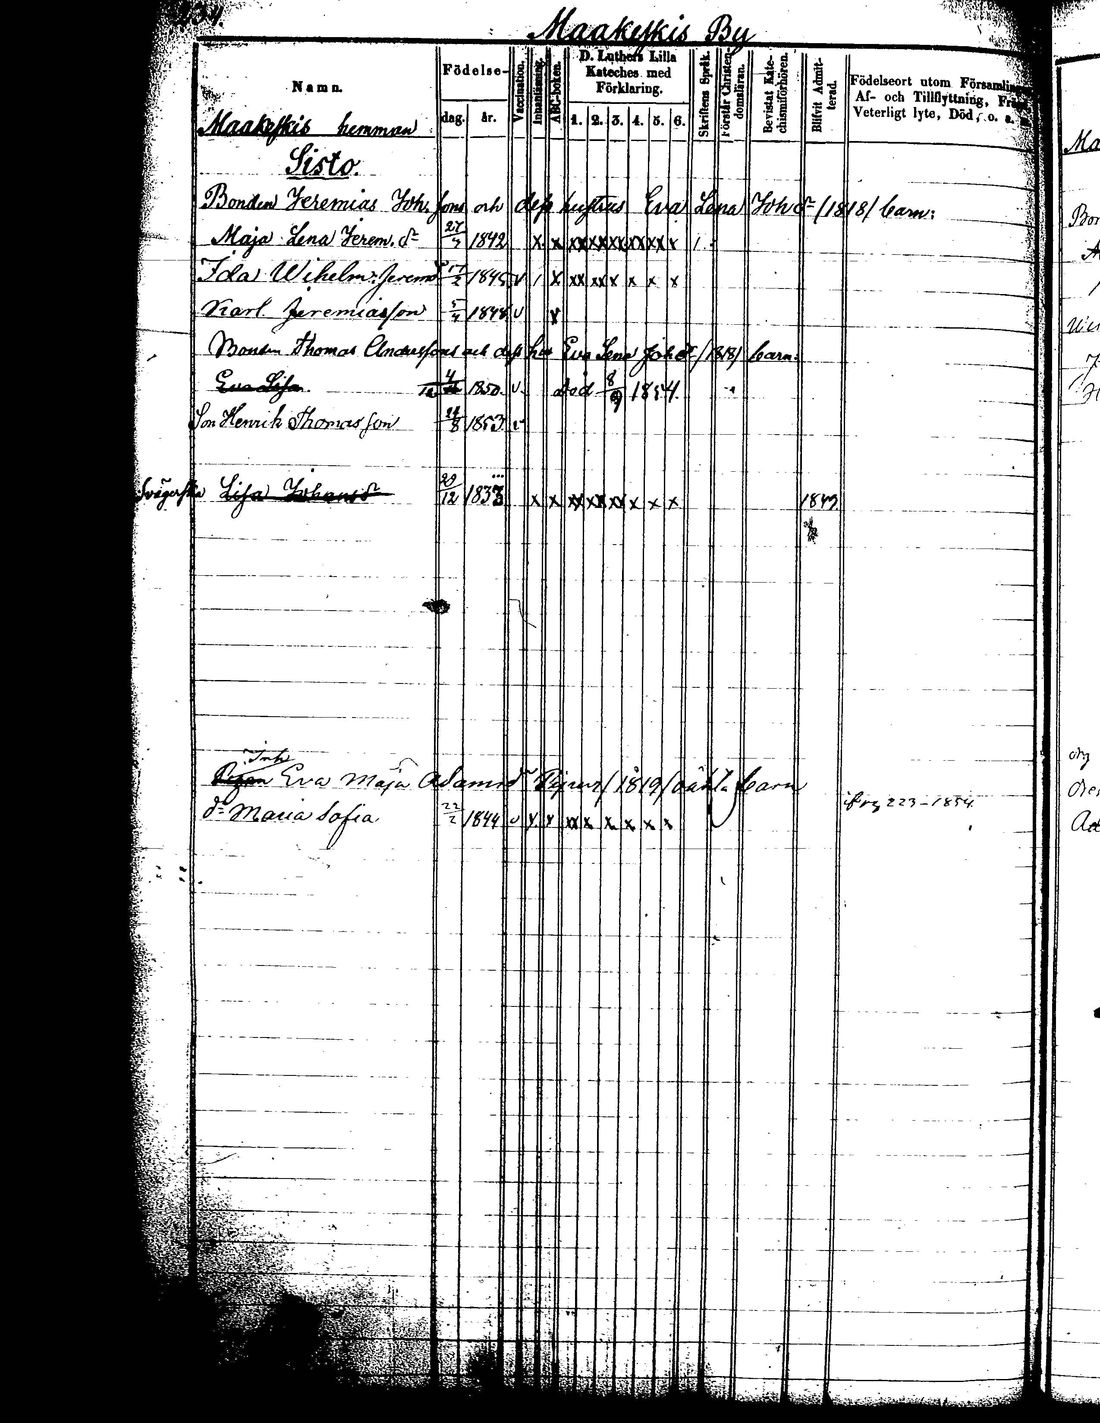 234.
Maakeskis By
Namn.
Födelse-
dag. år.
Vaccination.
Innanläsning.
ABC-boken.
D. Luthers Lilla
Kateches med
Förklaring.
1. 2. 3. 4. 5. 6.
Skriftens Språk.
Förstår Christen-
domsläran.
Bevistat Kate-
chismiförhören.
Blifvit Admit-
terad.
Födelseort utom Församlin
Af- och Tillflyttning, Fr
Veterligt lyte, Död, o. s.
Maakeskis hemman
Sisto.
Bonden Jeremias Joh. sons och dess hustrus Eva Lena Joh dr /1818/ barn:
Maja Lena Jerem. dr 27/7 1842 x x xx xx xx xx xx x
Ida Wilhelm: Jerem dr 17/2 1845 v x xx xx x x x x
Karl Jeremiasson 5/4 1848 v x
Bonden Thomas Andersfons och dess hu Eva Lena Joh dr /1818/ barn:
Eva Lisa 1850 v. död 8/9 1854
Son Henrik Thomasson 21/8 1853 v
Svägerska Lisa Johansdr 29/12 1833 x x xx xx xx x x x 1849
Inh
Eva Maja Adamsdr /1819/ oäkta barn
dr Maria Sofia 22/2 1844 v x x xx x x x x x
223-1854